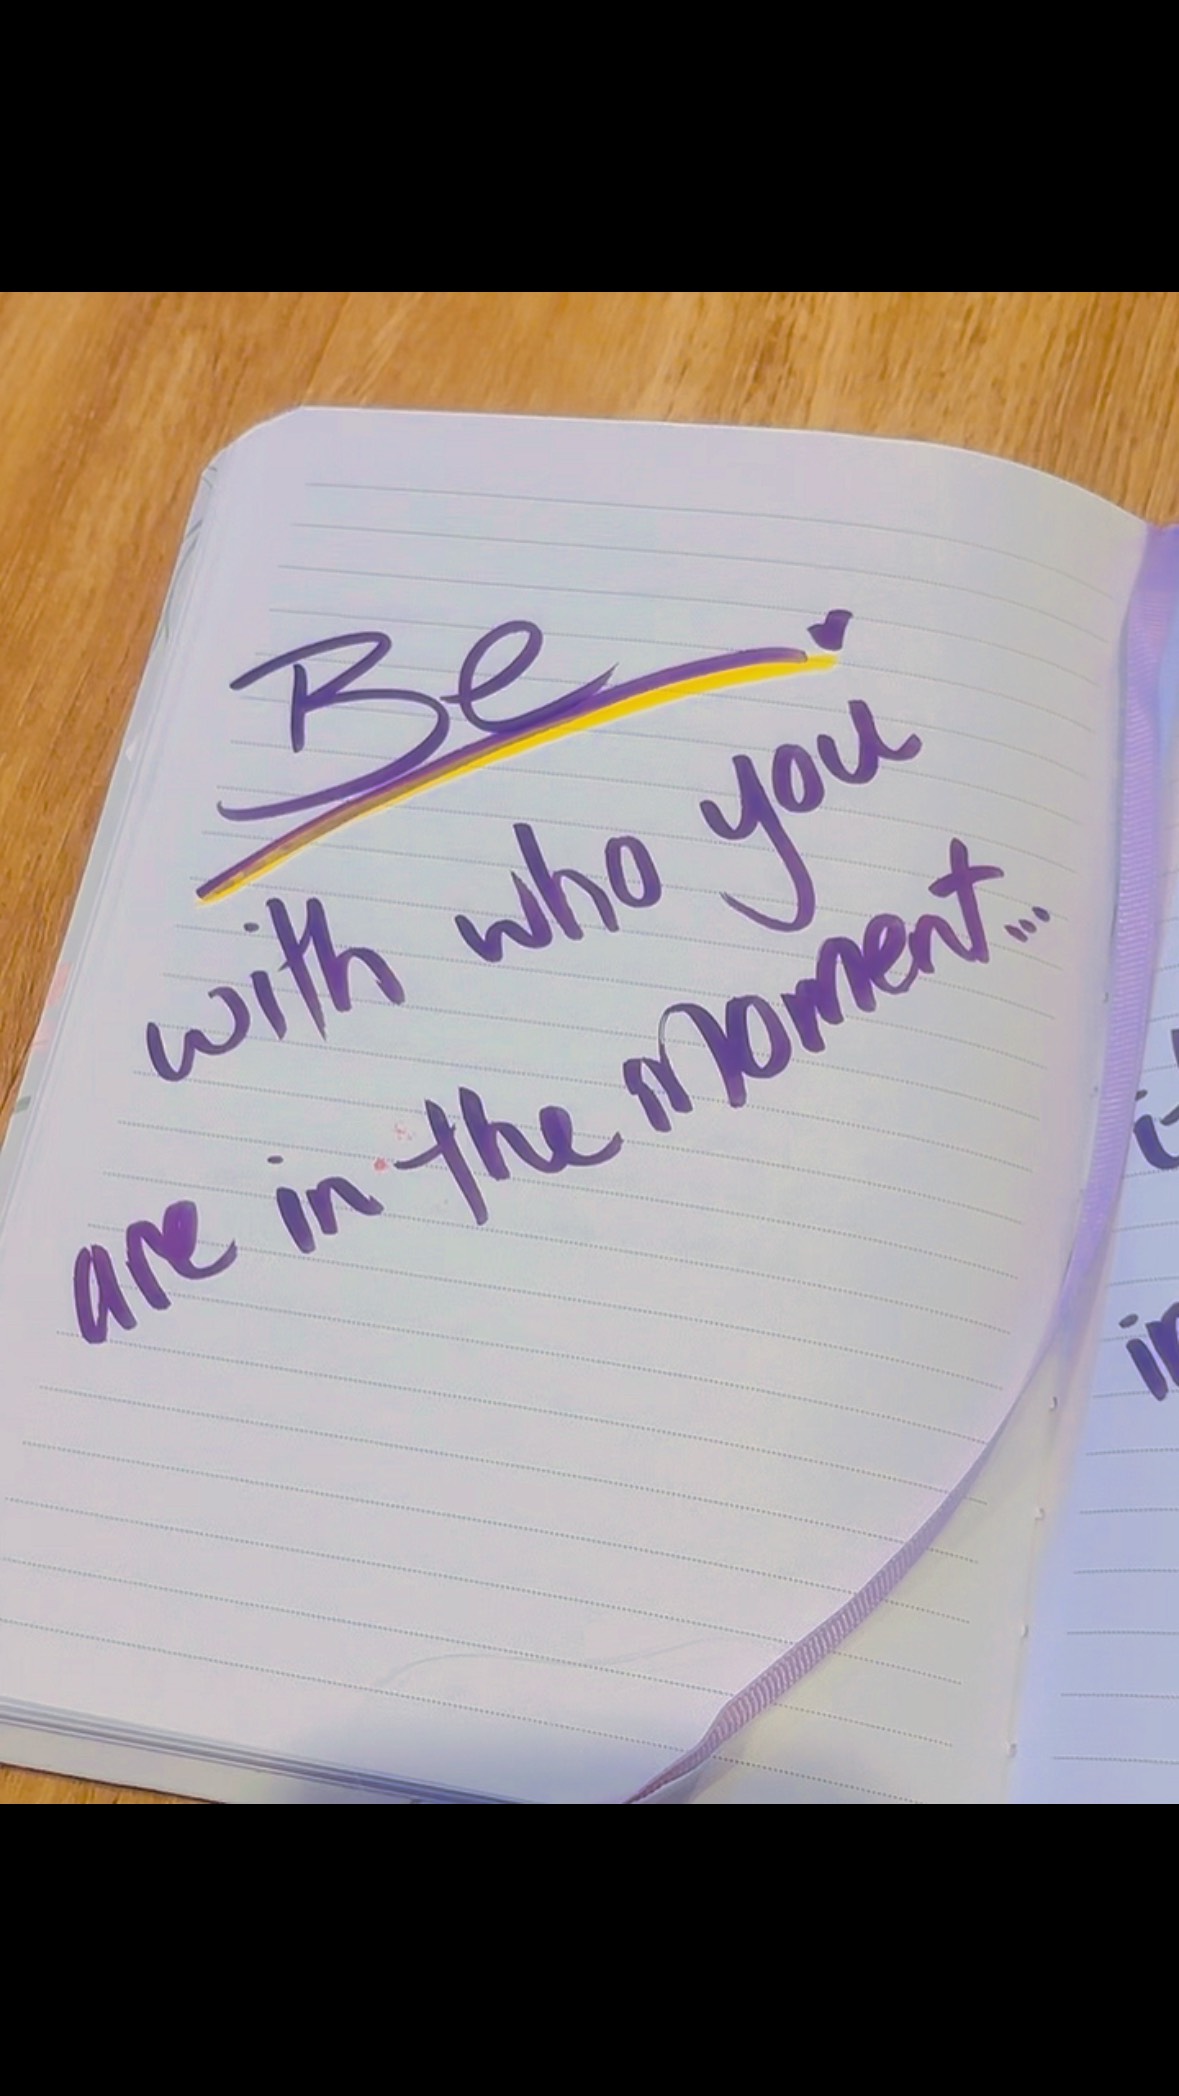 Be
with who you
are in the moment...